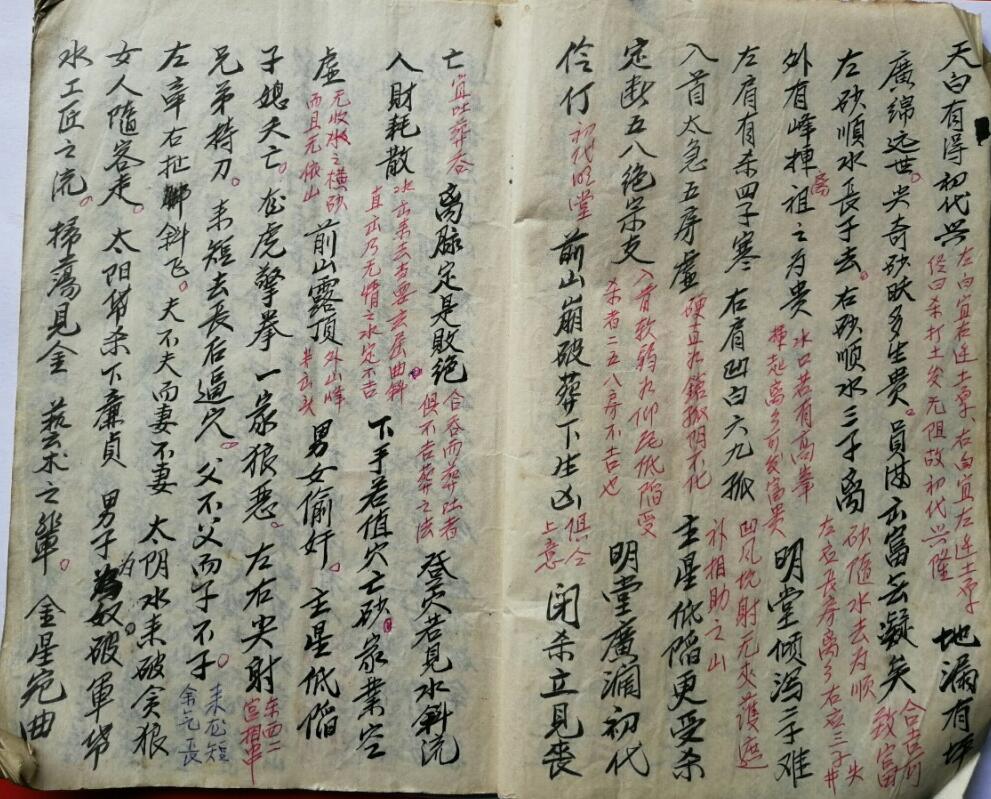 天白有得初代兴 左白宜右迁土享右白宜左迁土享 从曰杀打土矣无阻故初代兴隆 地漏有坪
廣綿远世。尖奇砂肤多生贵。員满云富去凝矣 合吉门致富
左砂順水長子去。右砂順水三子离 砂随水去为顺 左应長房离乡右应三子失井
外有峰揷祖之为贵 水口若有高峯揷起离乡可发富贵 明堂倾泻二子难
左肩有杀四子寒 右肩凹白六九孤 凹风坑射无夾護遮补相助之山
入首太急五房虛 硬直为鎗孤阴不化 主星低陷更受杀
定断五八绝宗支 入首软弱为仰瓦低陷受杀者二五八房不吉也 明堂廣濶初代
伶仃 初代明堂 前山崩破葬下生凶 俱合上意 闭杀立見丧
亡 宜吐葬吞 离脉定是敗绝 合吞而葬吐者俱不吉葬之法 登穴若見水斜流
人財耗散 水出来去者要去屈曲斜直出乃无情之水定不吉 下手若值穴亡砂 家業空
虛 无收水之横砂而且无依山 前山露顶 外山峰并出头 男女偷奸。主星低陷
子媳夭亡。龙虎擎拳一家狼恶。左右尖射 东西二宫相冲
兄弟持刀。来短去長后逼穴。父不父而子不子。 来龙短余气長
左牵右扯斜飞。夫不夫而妻不妻 太阴水来破贪狼
女人隨客走。太阳帶杀下廉贞 男子为奴破。破軍帶
水工匠之流。掃蕩見金 藝术之輩。金星宛曲